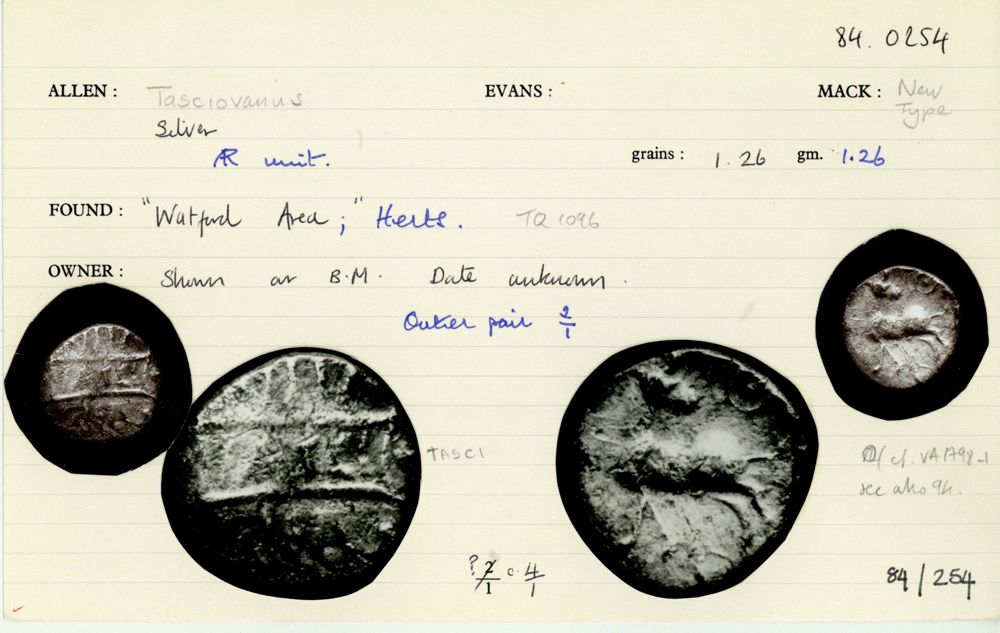 84. 0254
ALLEN : Tasciovanus EVANS : MACK : New Type
Silver
ÆR unit. grains : 1.26 gm. 1.26
FOUND : "Watford Area;" Herts. TQ 1096
OWNER : Shown at B.M. Date unknown.
Outer pair 2/1
TASCI
cf. VA1798-1
see also 94.
? 2/1 c. 4/1
84/254